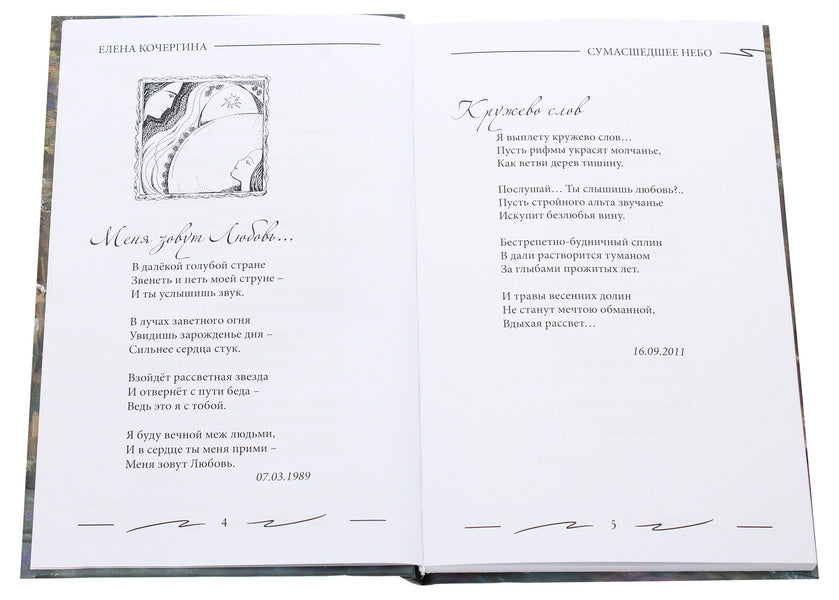 ЕЛЕНА КОЧЕРГИНА
Меня зовут Любовь...
В далёкой голубой стране
Звенеть и петь моей струне –
И ты услышишь звук.
В лучах заветного огня
Увидишь зарожденье дня –
Сильнее сердца стук.
Взойдёт рассветная звезда
И отвернёт с пути беда –
Ведь это я с тобой.
Я буду вечной меж людьми,
И в сердце ты меня прими –
Меня зовут Любовь.
07.03.1989
4
СУМАСШЕДШЕЕ НЕБО
Кружево слов
Я выплету кружево слов…
Пусть рифмы украсят молчанье,
Как ветви дерев тишину.
Послушай… Ты слышишь любовь?..
Пусть стройного альта звучанье
Искупит безлюбья вину.
Бестрепетно-будничный сплин
В дали растворится туманом
За глыбами прожитых лет.
И травы весенних долин
Не станут мечтою обманной,
Вдыхая рассвет…
16.09.2011
5